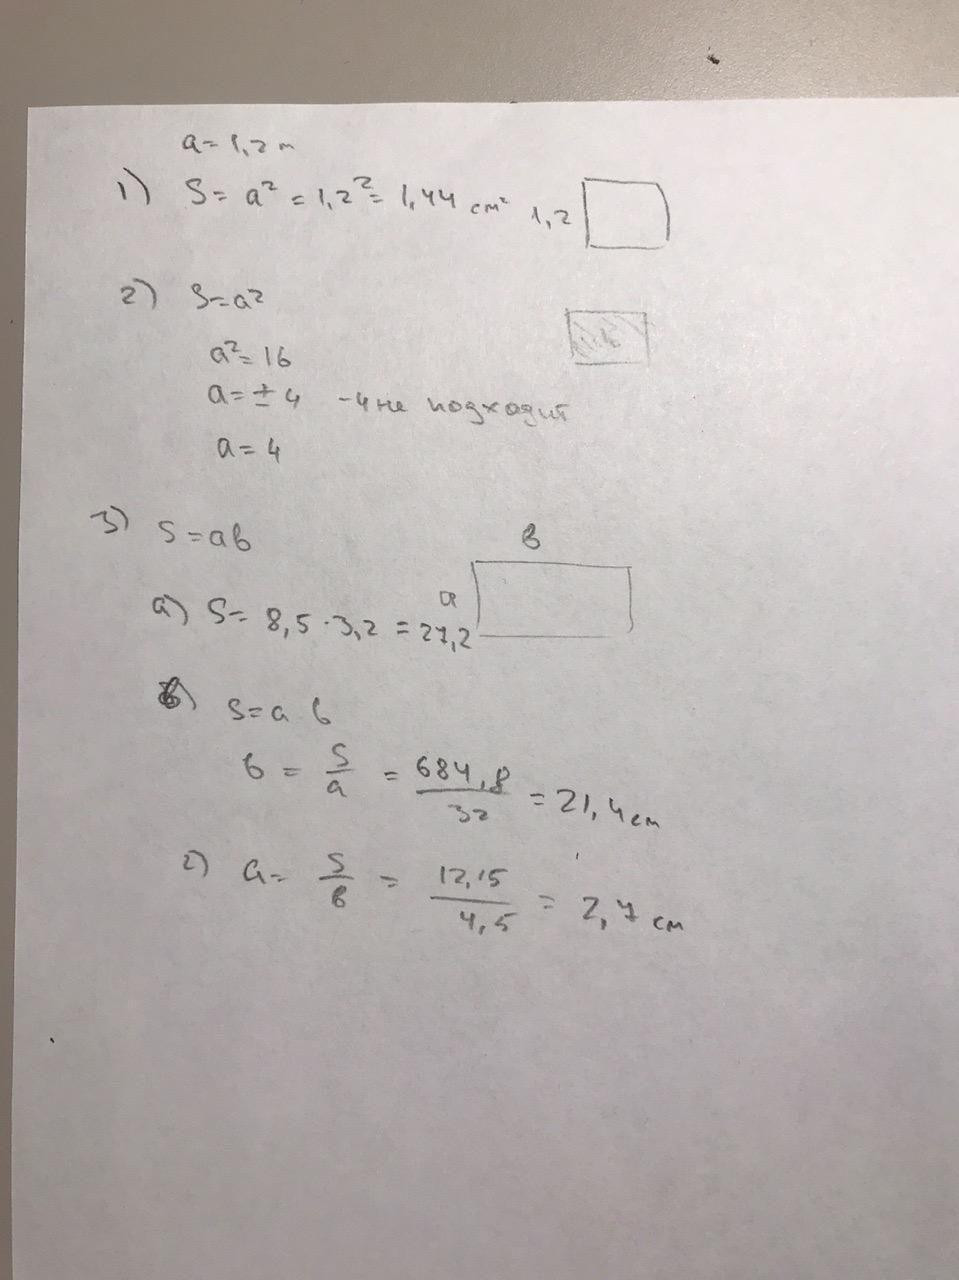 a = 1,2 м
1) S = a² = 1,2² = 1,44 см² 1,2
2) S = a²
a² = 16
a = ± 4 -4 не подходит
a = 4
3) S = ab
в
a
а) S = 8,5 · 3,2 = 27,2
б) S = a b
b = S/a = 684,8/32 = 21,4 см
г) a = S/в = 12,15/4,5 = 2,7 см